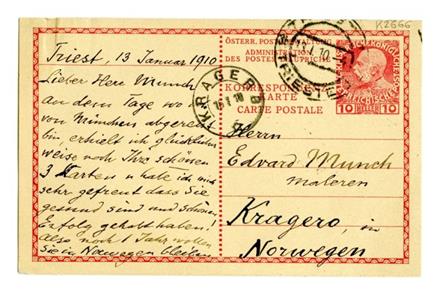 K2666
Triest, 13 Januar 1910
Lieber Herr Munch
An dem Tage wo ich
von München abgereist
bin erhielt ich glücklicher
weise noch Ihre schönen
3 Karten u habe ich mich
sehr gefreut dass Sie
gesund sind und schönen
Erfolg gehabt haben!
Also noch 1 Jahr wollen
Sie in Norwegen bleiben
ÖSTERR. POST
ADMINISTRATION
DES POSTES
KORRESPONDENZ
KARTE
CARTE POSTALE
10 HELLER 10
TRIESTE
KRAGERØ
Herrn
Edvard Munch
maleren
Kragerø, in
Norwegen